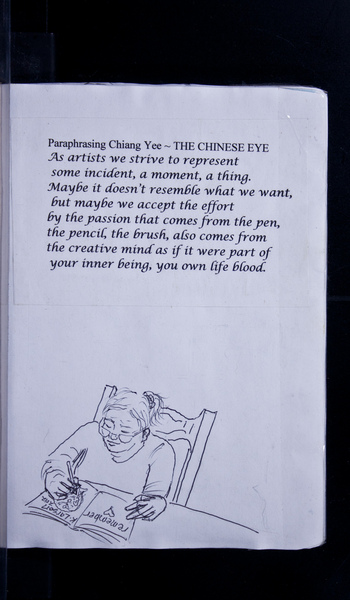 Paraphrasing Chiang Yee ~ THE CHINESE EYE
As artists we strive to represent
some incident, a moment, a thing.
Maybe it doesn't resemble what we want,
but maybe we accept the effort
by the passion that comes from the pen,
the pencil, the brush, also comes from
the creative mind as if it were part of
your inner being, you own life blood.
remember